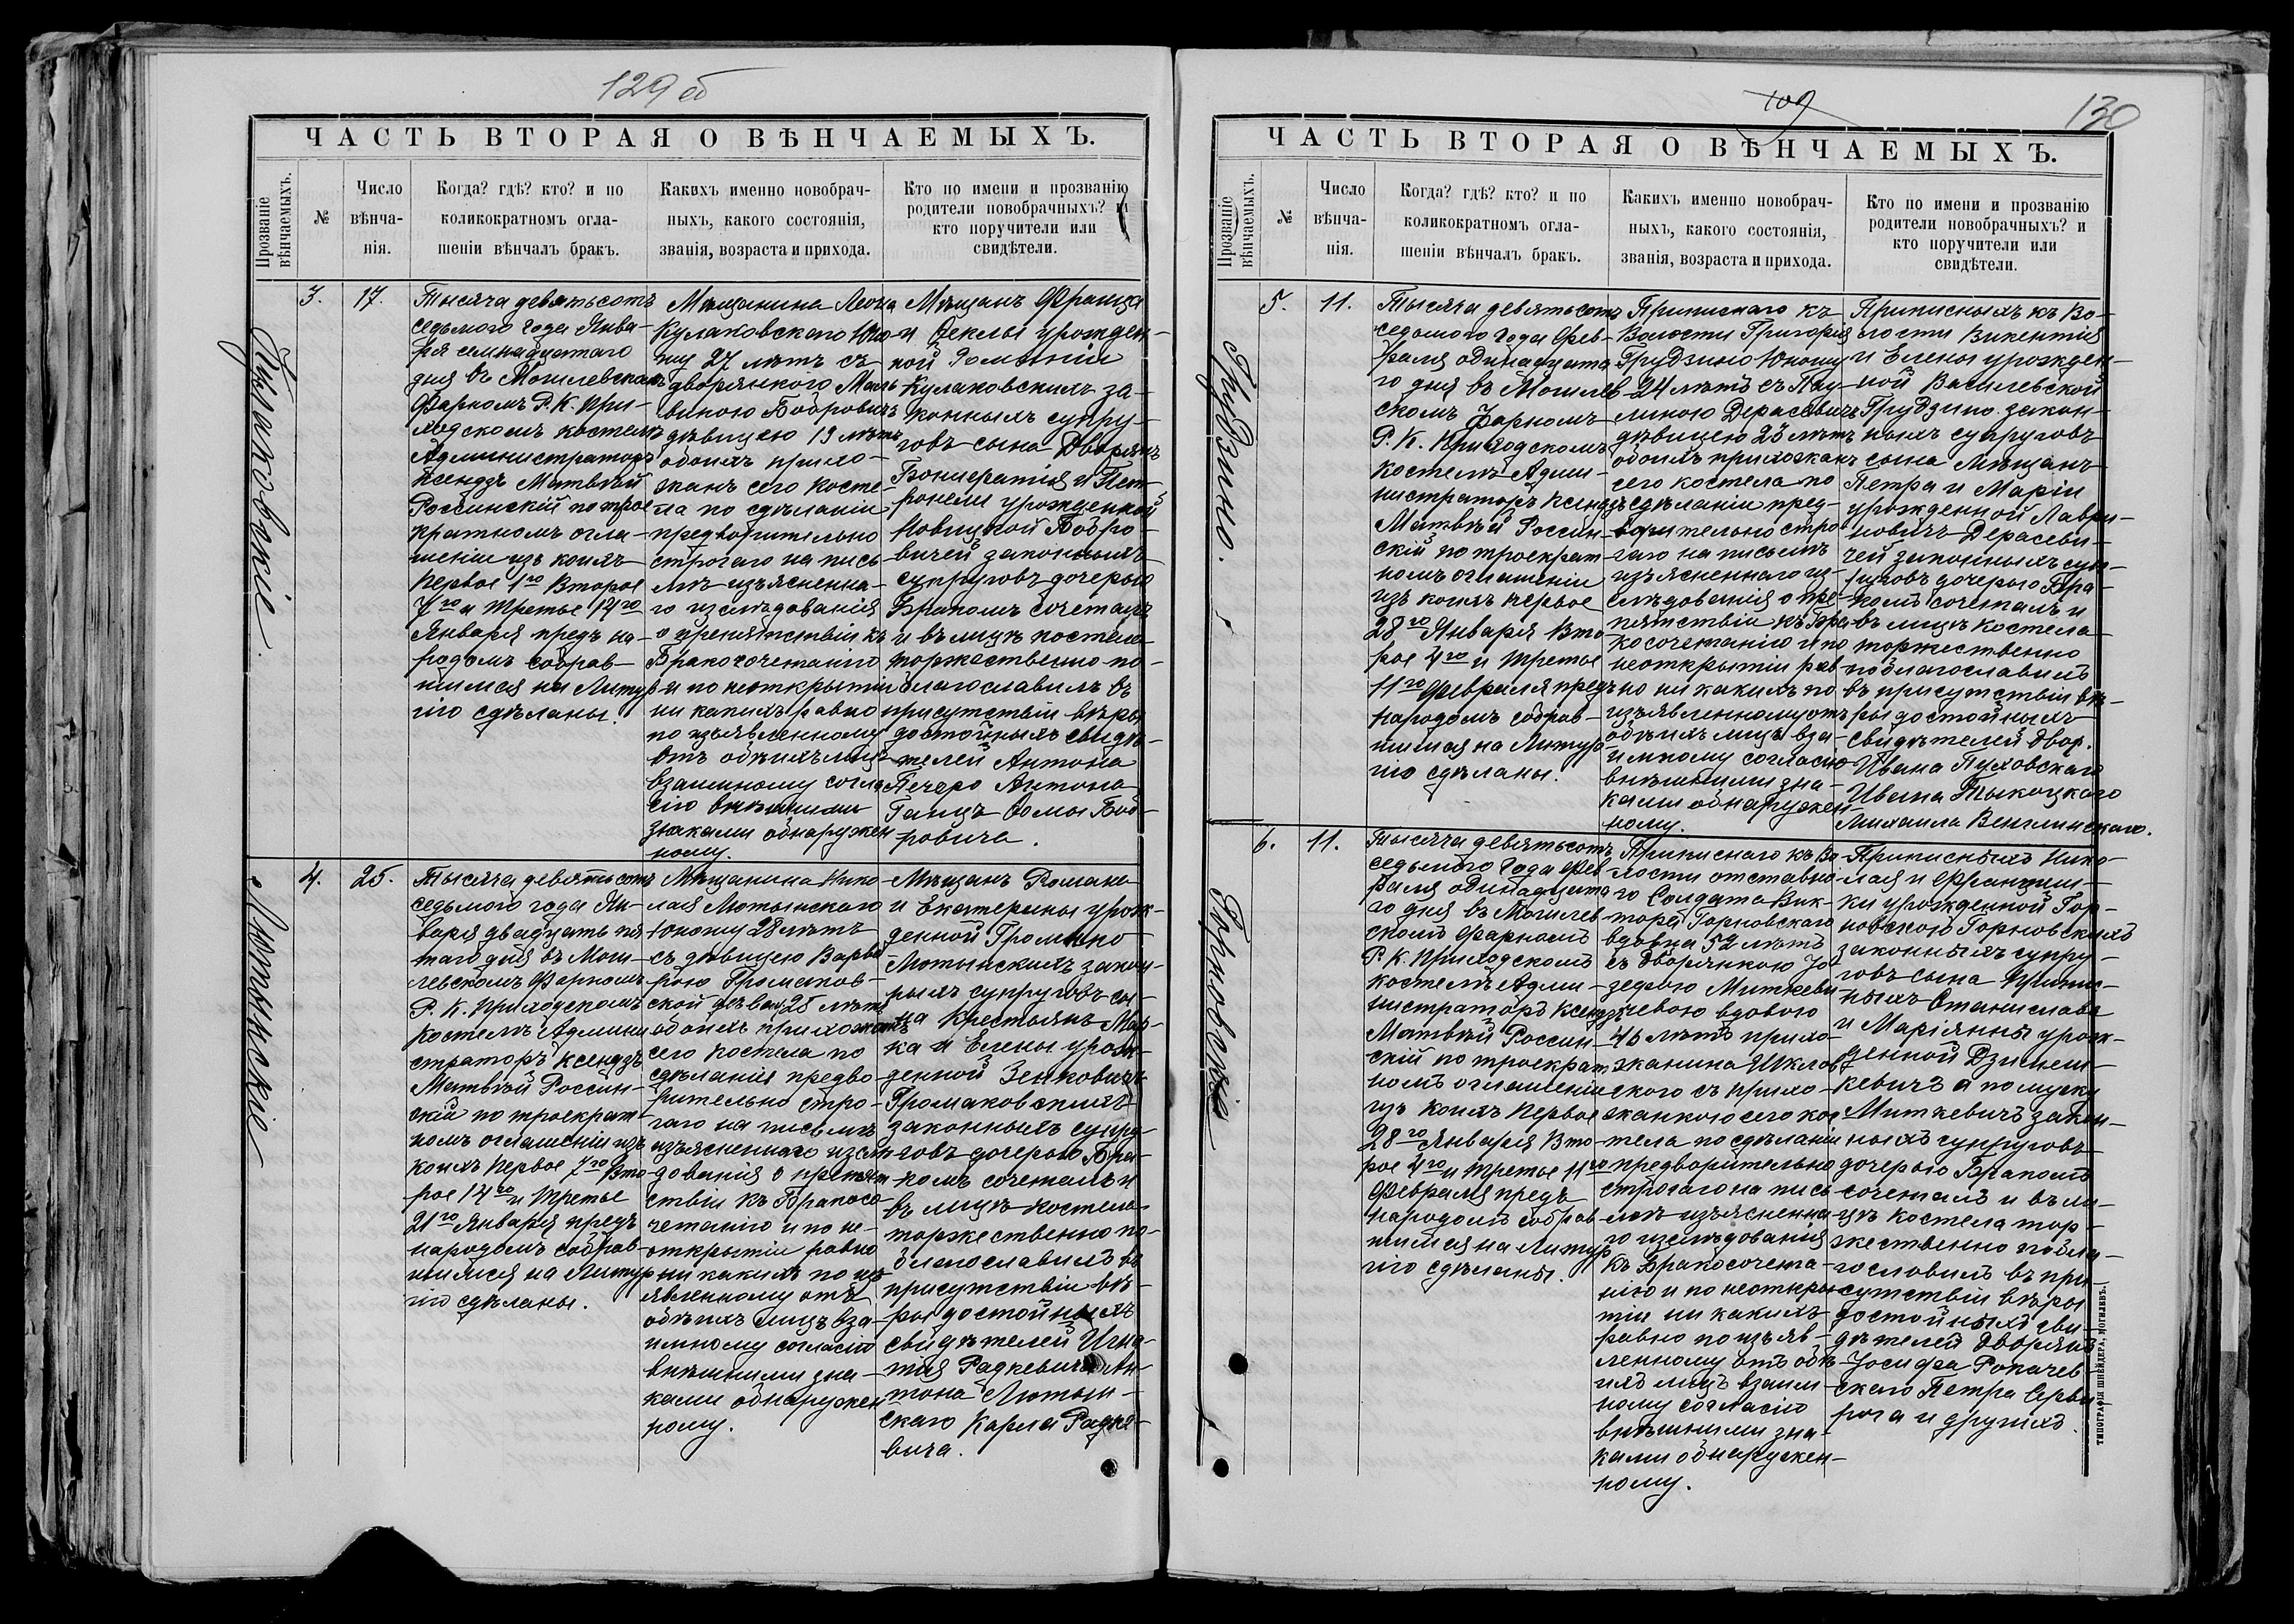 129 об
ЧАСТЬ ВТОРАЯ О ВѢНЧАЕМЫХЪ.
Прозваніе
вѣнчаемыхъ.
№
Число
вѣнча-
нія.
Когда? гдѣ? кто? и по
коликократномъ огла-
шеніи вѣнчалъ бракъ.
Какихъ именно новобрач-
ныхъ, какого состоянія,
званія, возраста и прихода.
Кто по имени и прозванію
родители новобрачныхъ? и
кто поручители или
свидѣтели.
Кулаковскіе
3.
17.
Тысяча девятьсотъ
седьмого года Янва-
ря семнадцатаго
дня въ Могилевскомъ
Фарномъ Р. К. при-
ходскомъ костелѣ
Администраторъ
Ксендзъ Матвѣй
Россинскій по трое
кратномъ огла-
шеніи изъ коихъ
Первое 1го Второе
7го и Третье 14го
Января предъ на-
родомъ собрав-
шимся на Литур
гію сдѣланы.
Мѣщанина Леона
Кулаковскаго Юно-
шу 27 лѣтъ съ
дворянкою Маль
виною Бобровичъ
дѣвицею 19 лѣтъ
обоихъ прихо-
жанъ сего косте
ла по сдѣланіи
предворительно
строгаго на пись
мѣ изъясненна-
го изслѣдованія
о препятствіи къ
Бракосочетанію
и по неткрытіи
ни какихъ равно
по изъявленному
отъ обѣихъ лицъ
взаимному согла
сію внѣшними
знаками обнаружен
ному.
Мѣщанъ Франца
и Феклы урожден-
ной Гомолніи
Кулаковскихъ за-
конныхъ супру-
говъ сына Дворянъ
Бонифатія и Пет
ронели урожденной
Новицкой Бобро-
вичей законныхъ
супруговъ дочерью
Бракомъ сочеталъ
и въ лицѣ костела
торжественно по-
благославилъ въ
присутствіи вѣры
достойныхъ свидѣ-
телей Антона
Печеро Антона
Ганцъ Фомы Боб-
ровича.
Лютынскіе
4.
25.
Тысяча девятьсотъ
седьмого года Ян-
варя двадцать пя
таго дня въ Моги-
левскомъ Фарномъ
Р. К. приходскомъ
костелѣ Админи
страторъ Ксендзъ
Матвѣй Россин-
скій по троекрат-
номъ оглашеніи изъ
коихъ Первое 7го Вто
рое 14го и Третье
21го Января предъ
народомъ собрав-
шимся на Литур
гію сдѣланы.
Мѣщанина Нико
лая Лютынскаго
Юношу 28 лѣтъ
съ дѣвицею Варва
рою Громаков-
ской дѣвиц 25 лѣтъ
обоихъ прихожанъ
сего костела по
сдѣланія предво
рительно стро-
гаго на письмѣ
изъясненнаго изслѣ
дованія о препят
ствіи къ Бракосо
четанію и по не-
открытіи равно
ни какихъ по изъ
явленному отъ
обѣихъ лицъ вза-
имному согласію
внѣшними зна-
ками обнаружен
ному.
Мѣщанъ Романа
и Екатерины урож-
денной Громыко
Лютынскихъ закон-
ныхъ супруговъ сы-
на Крестьянъ Мар-
ка и Елены урож-
денной Зенковичъ
Громаковскихъ
законныхъ супру-
говъ дочерью Бра-
комъ сочеталъ и
въ лицѣ костела
торжественно по-
благославилъ въ
присутствіи вѣ-
ры достойныхъ
свидѣтелей Игна-
тія Радкевича Ан-
тона Лютын-
скаго Карла Радке-
вича.
109
130
ЧАСТЬ ВТОРАЯ О ВѢНЧАЕМЫХЪ.
Прозваніе
вѣнчаемыхъ.
№
Число
вѣнча-
нія.
Когда? гдѣ? кто? и по
коликократномъ огла-
шеніи вѣнчалъ бракъ.
Какихъ именно новобрач-
ныхъ, какого состоянія,
званія, возраста и прихода.
Кто по имени и прозванію
родители новобрачныхъ? и
кто поручители или
свидѣтели.
Грудзино.
5.
11.
Тысяча девятьсотъ
седьмого года Фев-
раля одинадцата
го дня въ Могилев-
скомъ Фарномъ
Р. К. Приходскомъ
костелѣ Адми-
нистраторъ Ксендзъ
Матвѣй Россин-
скій по троекрат
номъ оглашеніи
изъ коихъ первое
28го Января Вто
рое 4го и Третье
11го Февраля предъ
народомъ собрав-
шимся на Литур
гію сдѣланы.
Приписнаго къ
Волости Григорія
Грудзино Юношу
24 лѣтъ съ Пау-
линою Дерасевичъ
дѣвицею 23 лѣтъ
обоихъ прихожанъ
сего костела по
сдѣланіи пред-
ворительно стро
гаго на письмѣ
изъясненнаго из-
слѣдованія о пре-
пятствіи къ Бра-
косочетанію и по
неоткрытіи рав
но ни какихъ по
изъявленному отъ
обѣихъ лицъ вза-
имному согласію
внѣшними зна-
ками обнаружен-
ному.
Приписныхъ къ Во-
лости Викентія
и Елены урожден-
ной Василевской
Грудзино закон-
ныхъ супруговъ
сына Мѣщанъ
Петра и Маріи
урожденной Лаври-
новичъ Дерасеви-
чей законныхъ суп-
руговъ дочерью Бра-
комъ сочеталъ и
въ лицѣ костела
торжественно
поблагославилъ
въ присутствіи вѣ-
ры достойныхъ
свидѣтелей Двор.
Ивана Пуховскаго
Ивана Тыкоцкаго
Михаила Венглинскаго.
Горновскіе
6.
11.
Тысяча девятьсотъ
седьмого года Фев
раля одинадцата
го дня въ Могилев
скомъ Фарномъ
Р. К. Приходскомъ
костелѣ Адми-
нистраторъ Ксендзъ
Матвѣй Россин-
скій по троекрат
номъ оглашеніи
изъ коихъ Первое
28го Января Вто-
рое 4го и Третье 11го
Февраля предъ
народомъ собрав
шимся на Литур
гію сдѣланы.
Приписнаго къ Во
лости отставно
го Солдата Вик-
тора Горновскаго
вдовца 52 лѣтъ
съ Дворянкою Іо
зефою Миткеви
чевою вдовою
46 лѣтъ прихо-
жанина Шклов
скаго съ прихо-
жанкою сего кос
тела по сдѣланіи
предворительно
строгаго на пись
мѣ изъясненна
го изслѣдованія
къ Бракосочета-
нію и по неоткры
тіи ни какихъ
равно по изъяв-
ленному отъ обѣ-
ихъ лицъ взаим
ному согласію
внѣшними зна-
ками обнаружен-
ному.
Приписныхъ Нико-
лая и Францишки
урожденной Гор-
новскою Горновскихъ
законныхъ супру-
говъ сына Припис-
ныхъ Станислава
и Маріянны урож-
денной Дзинеш-
кевичъ а по мужу
Миткевичъ закон-
ныхъ супруговъ
дочерью Бракомъ
сочеталъ и въ ли-
цѣ костела тор-
жественно побла-
гословилъ въ при
сутствіи вѣры
достойныхъ сви-
дѣтелей Дворянъ
Іосифа Рокачев
скаго Петра Серви
рога и другихъ.
ТИПОГРАФІЯ ШНЕЙДЕРА, МОГИЛЕВЪ.